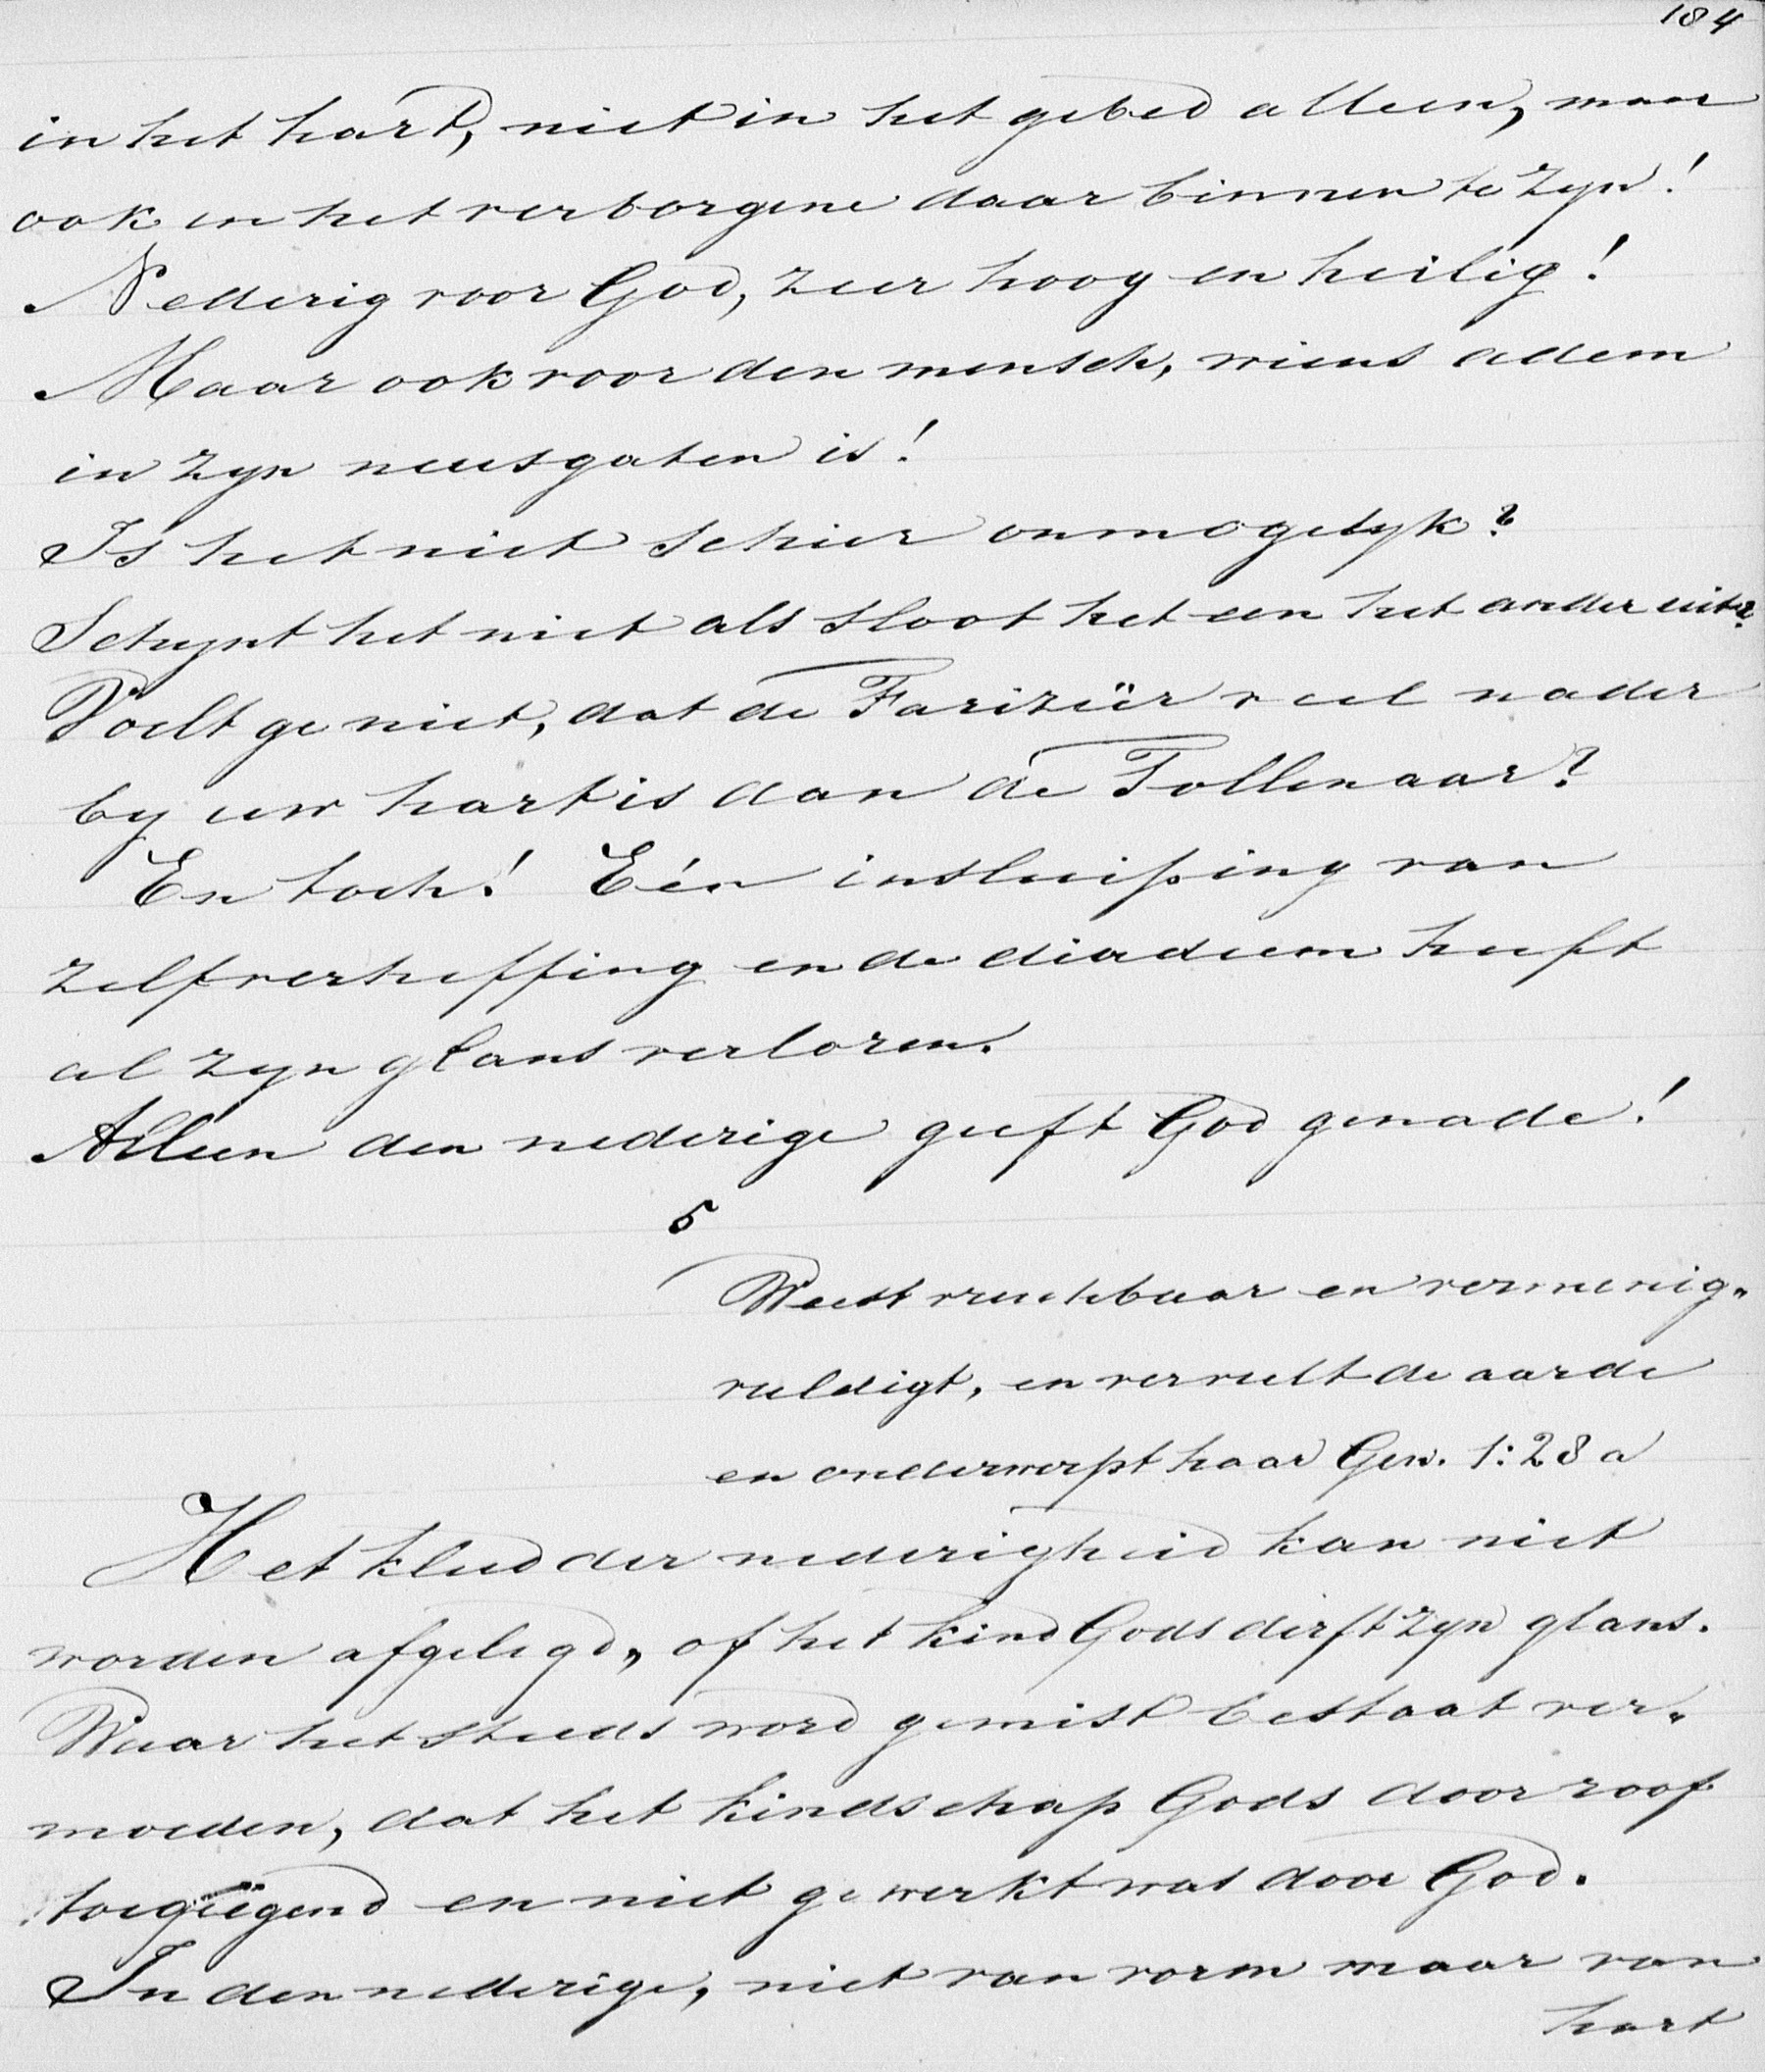 184
in het hart, niet in het gebed alleen, maar
ook in het verborgene daar binnen te zyn!
Nederig voor God, zeer hoog en heilig!
Maar ook voor den mensch, wiens adem
in zyn neusgaten is!
Is het niet schier onmogelyk?
Schynt het niet als sloot het een het ander uit?
Voelt ge niet, dat de Farizeër veel nader
by uw hart is dan de Tollenaar?
En toch! Eén insluiping van
zelfverheffing en de diadeem heeft
al zyn glans verloren.
Alleen den nederige geeft God genade!
5
Weest vruchtbaar en vermenig„
vuldigt, en vervult de aarde
en onderwerpt haar Gen. 1:28 a
Het kleed der nederigheid kan niet
worden afgelegd, of het kind Gods derft zyn glans.
Waar het steeds word gemist bestaat ver„
moeden, dat het kindschap Gods door roof
toegeëigend en niet gewerkt was door God.
In den nederige, niet van vorm maar van
hart